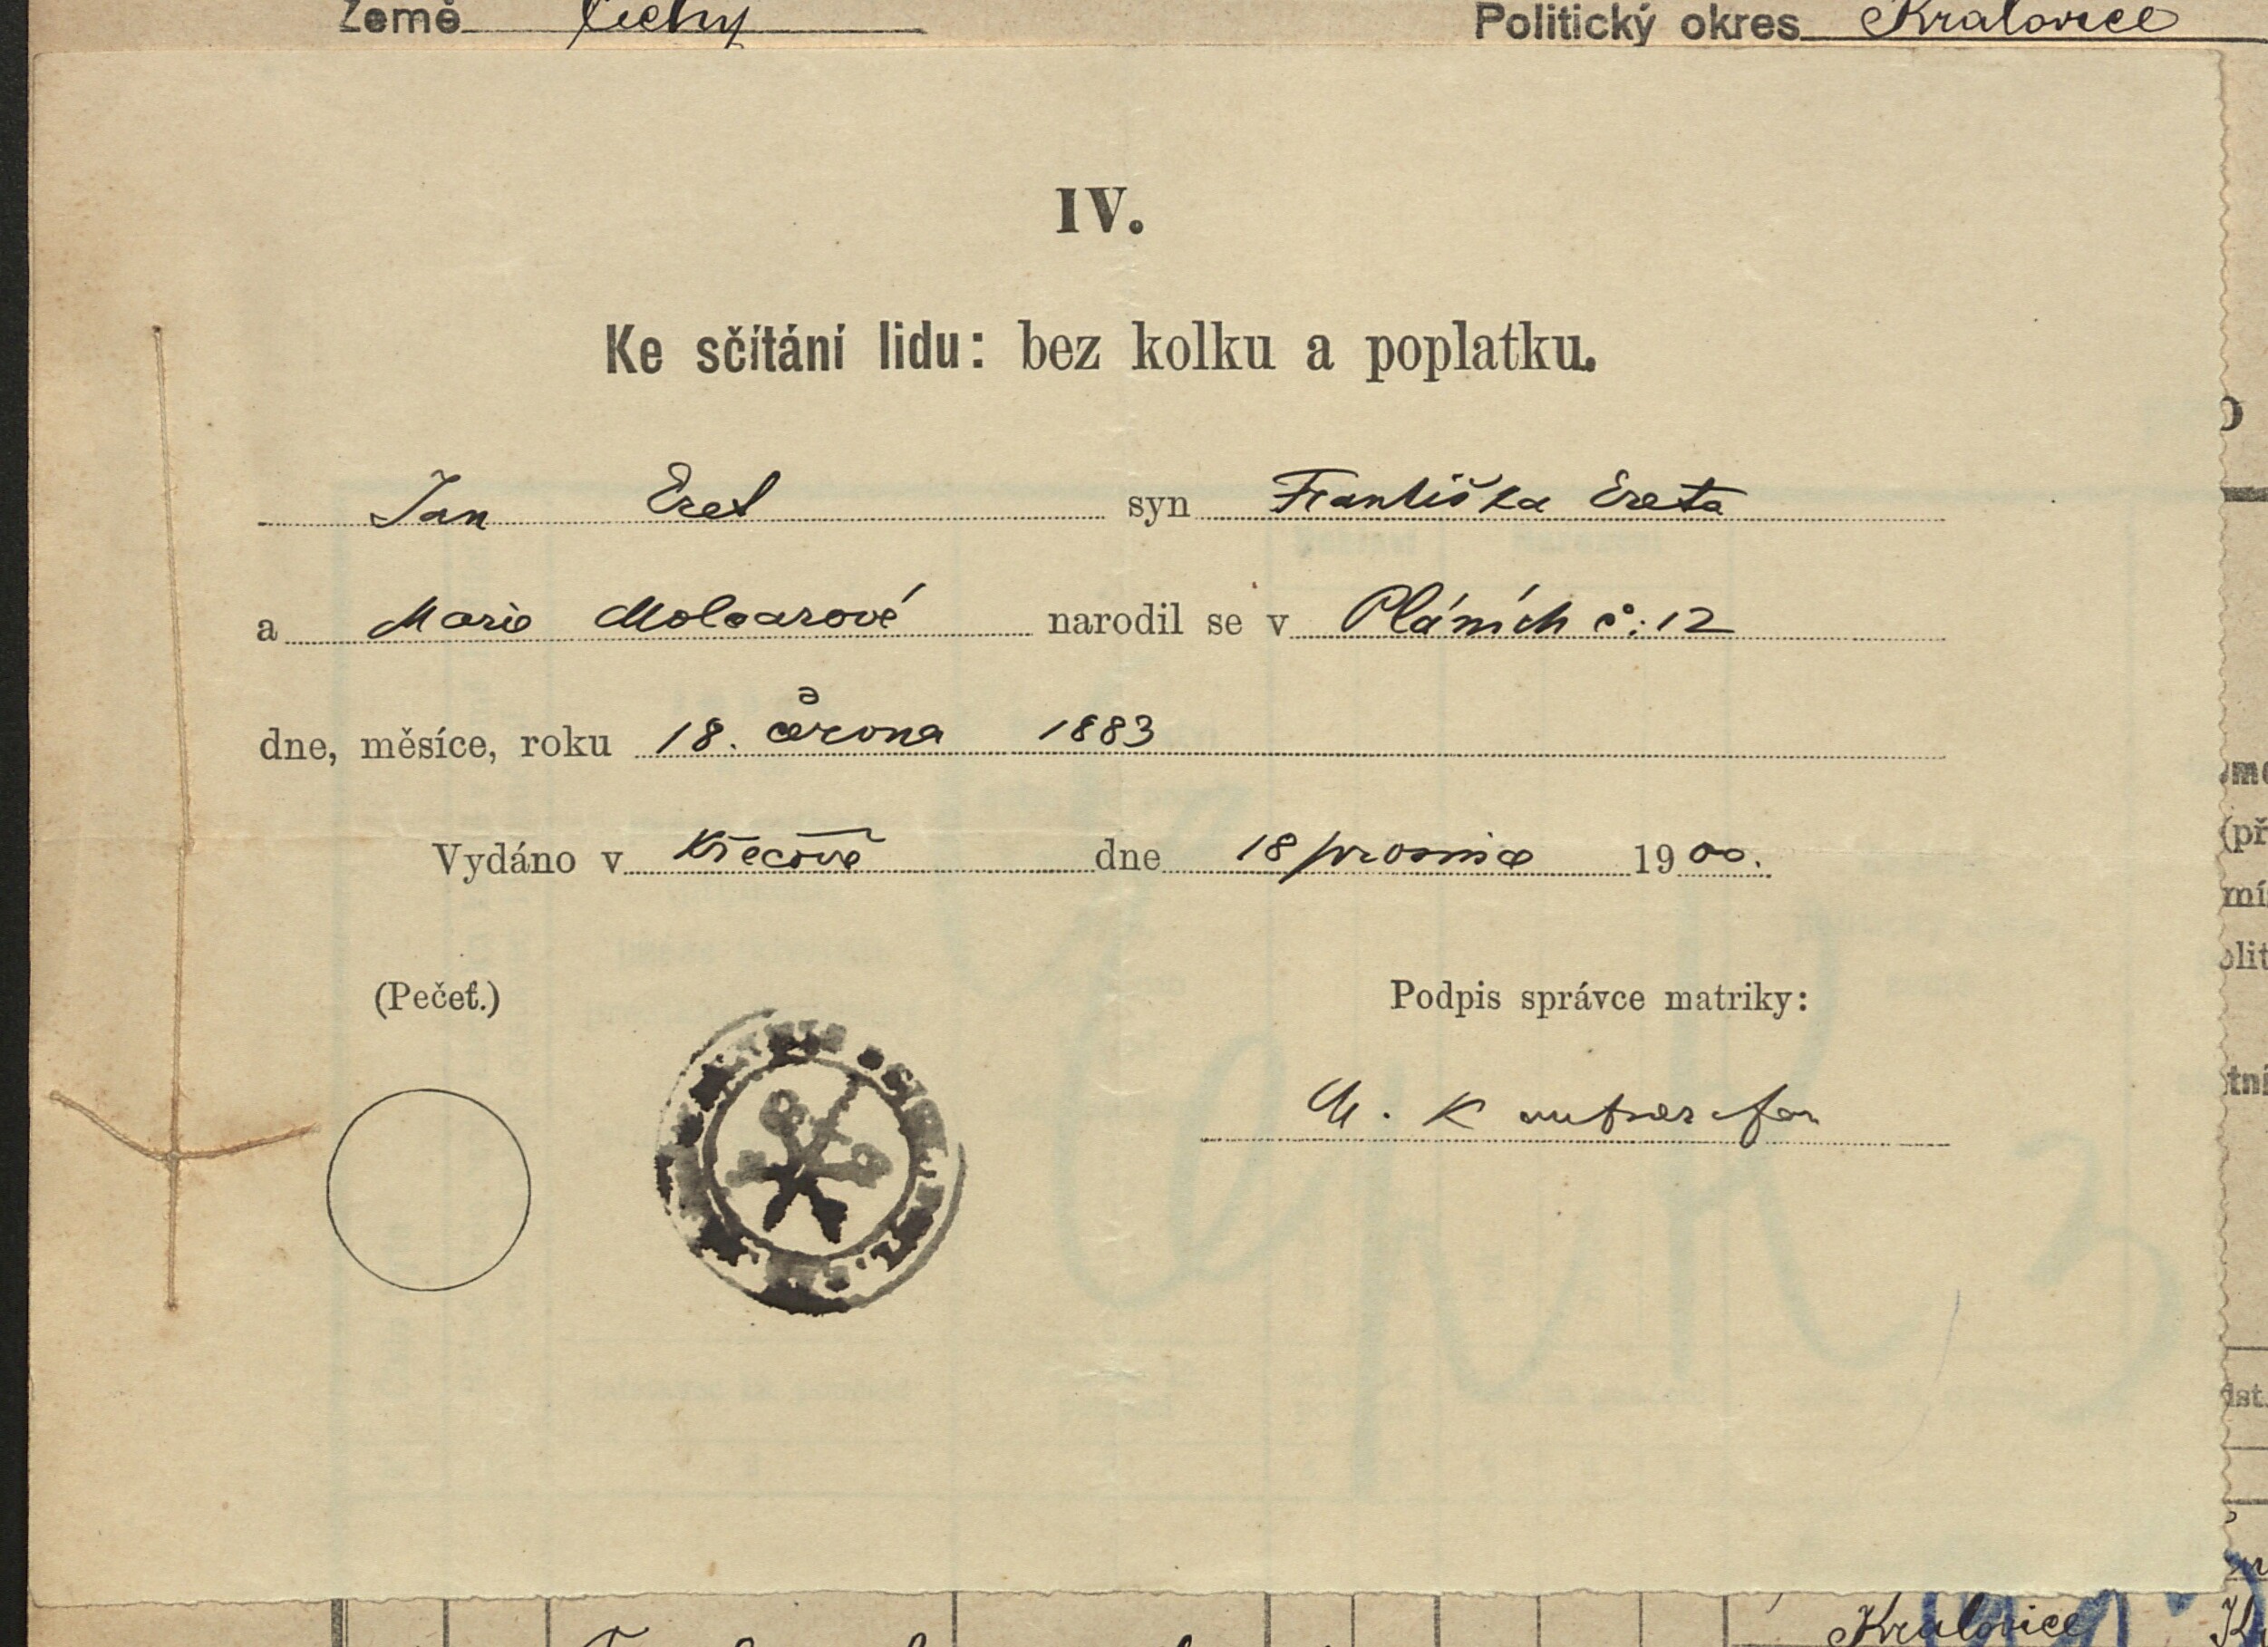 Země Čechy Politický okres Kralovice
IV.
Ke sčítání lidu: bez kolku a poplatku.
Jan Eret syn Františka Ereta
a Marie Molcarové narodil se v Pláních č: 12
dne, měsíce, roku 18. června 1883
Vydáno v Křečově dne 18 prosince 1900.
(Pečeť.) Podpis správce matriky:
Kralovice